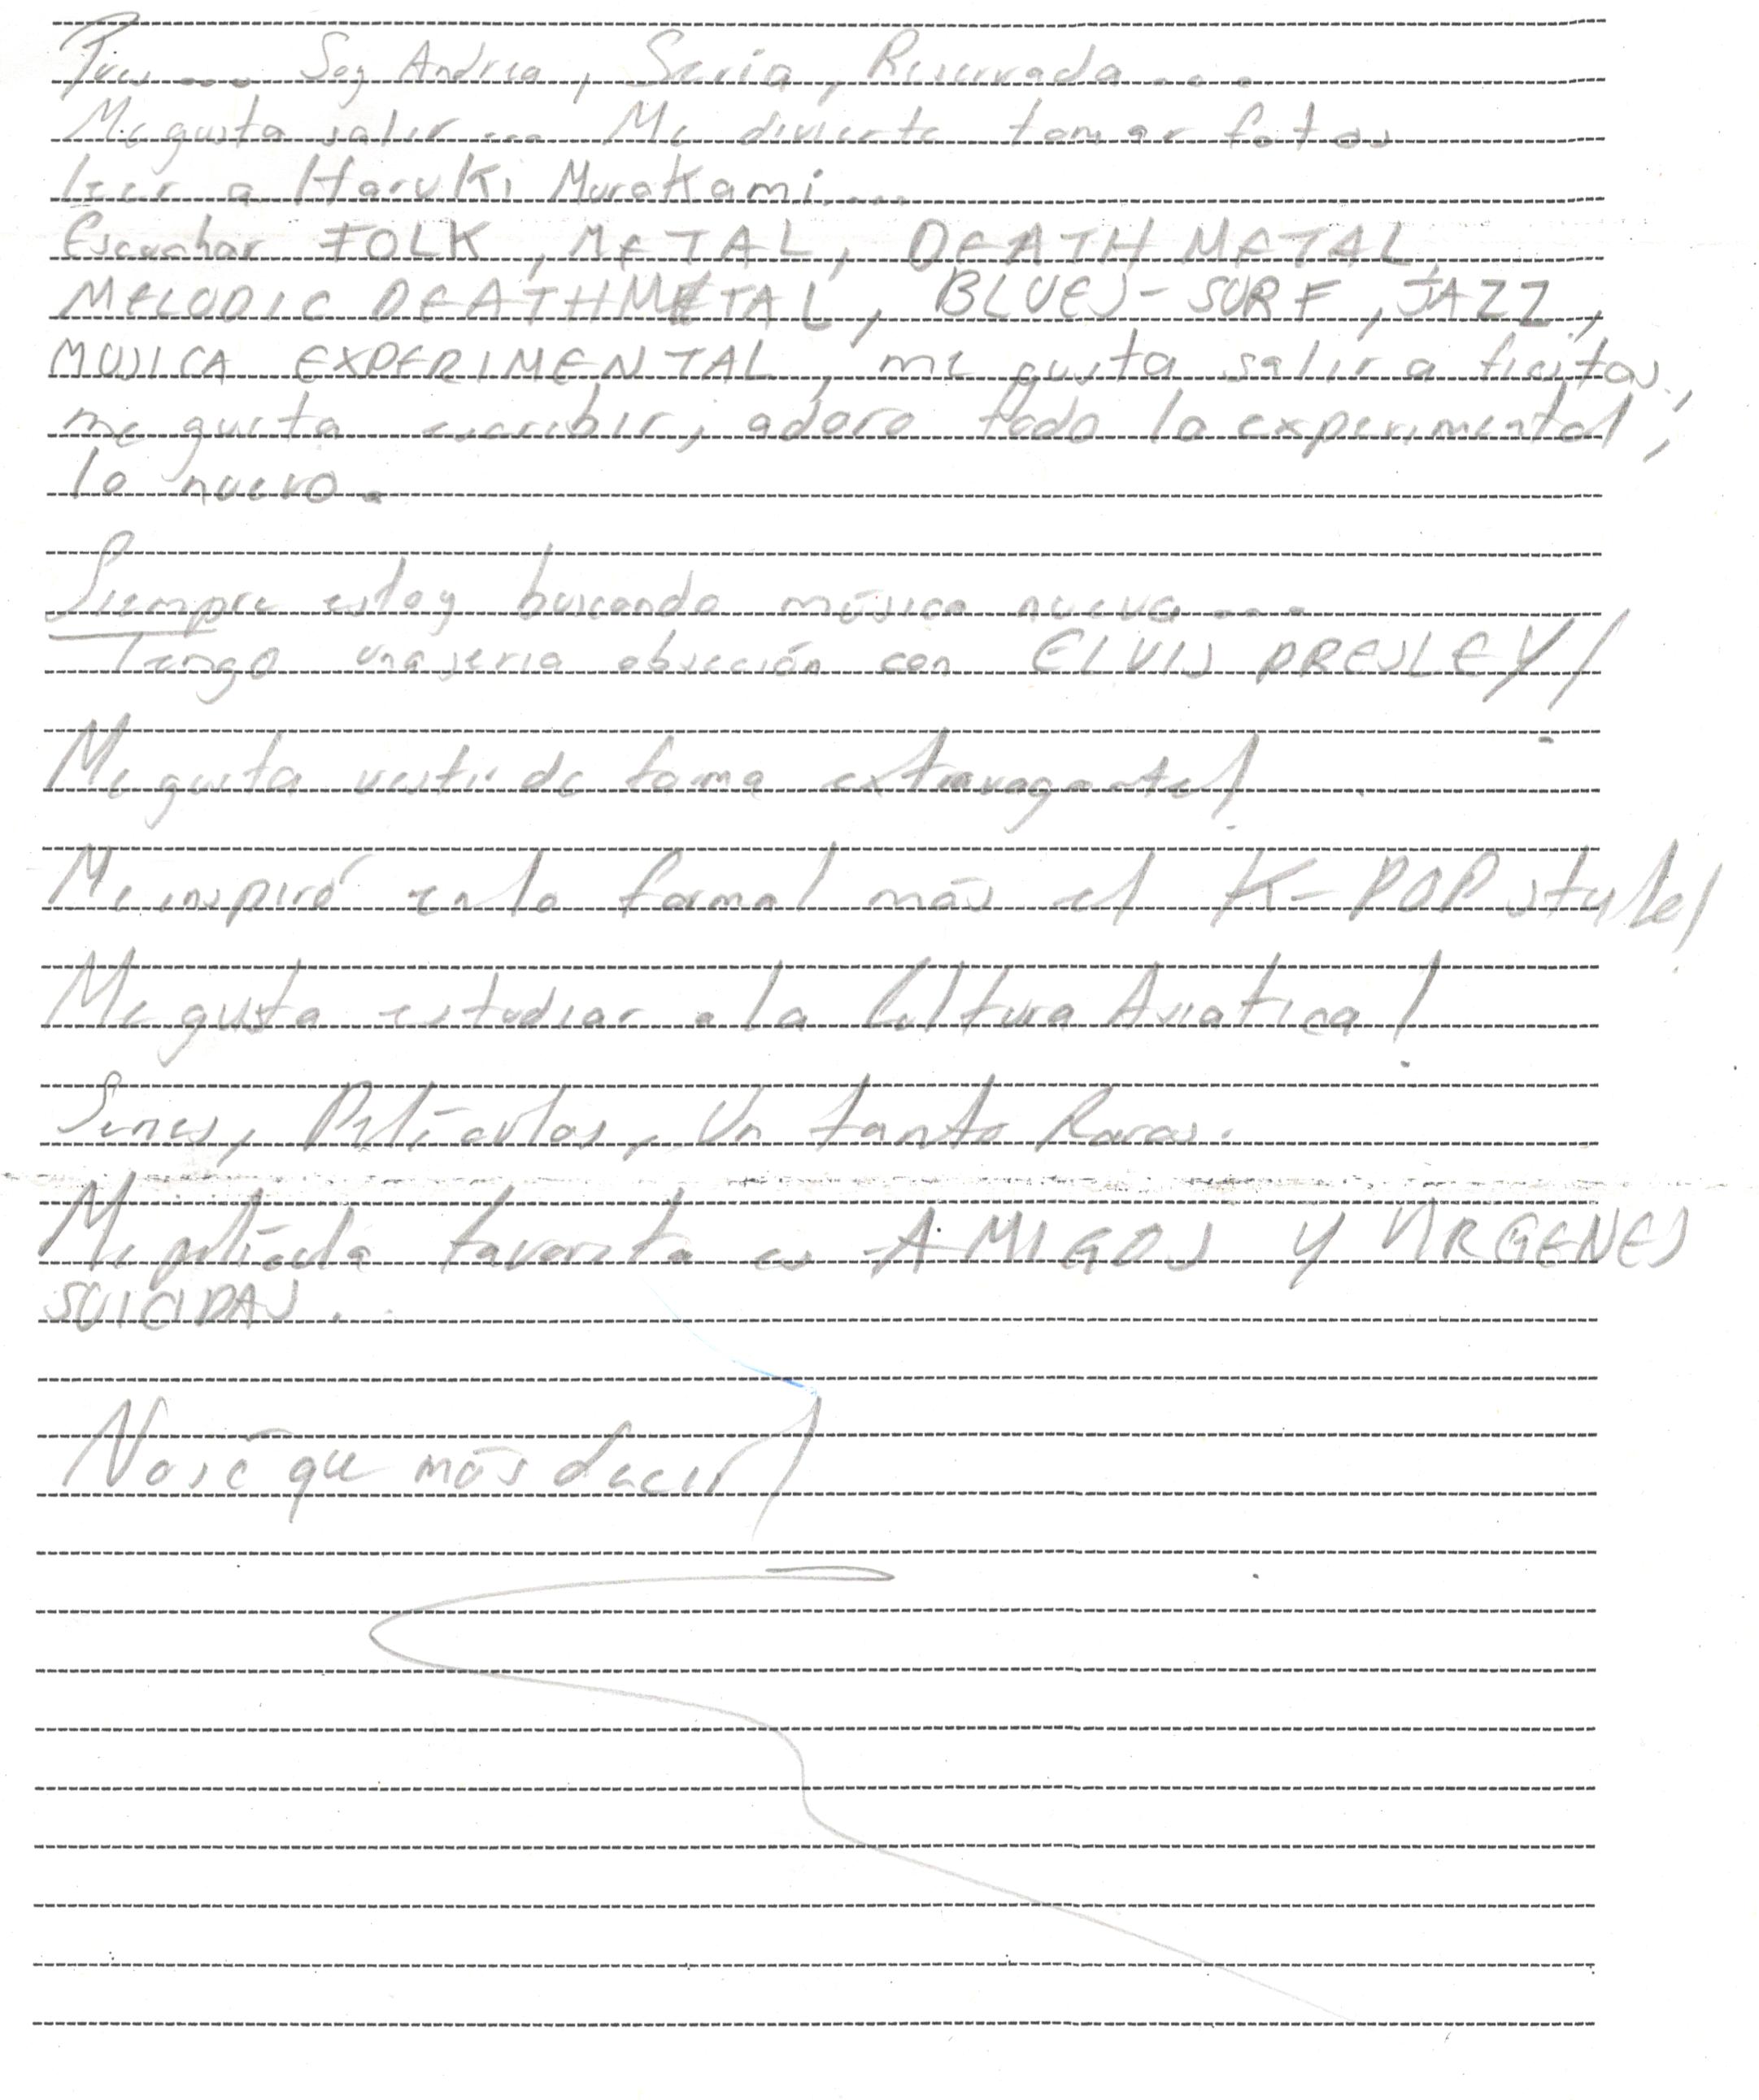 Pues.... Soy Andrea, Seria, Reservada....
Me gusta salir.... Me divierte tomar fotos
leer a Haruki Murakami....
Escuchar FOLK, METAL, DEATH METAL,
MELODIC DEATH METAL, BLUES-SURF, JAZZ,
MUSICA EXPERIMENTAL, me gusta salir a fiestas,
me gusta escribir, adoro todo lo experimental,
lo nuevo.
Siempre estoy buscando música nueva....
Tengo una seria obsección con ELVIS PRESLEY!
Me gusta vestir de forma extravagante!
Me inspiró en lo formal más el K-POP style!
Me gusta estudiar a la Cultura Asiatica!
Series, Películas, Un tanto Raras.
Mi película favorita es AMIGOS Y VIRGENES
SUICIDAS.
No sé que más decir!